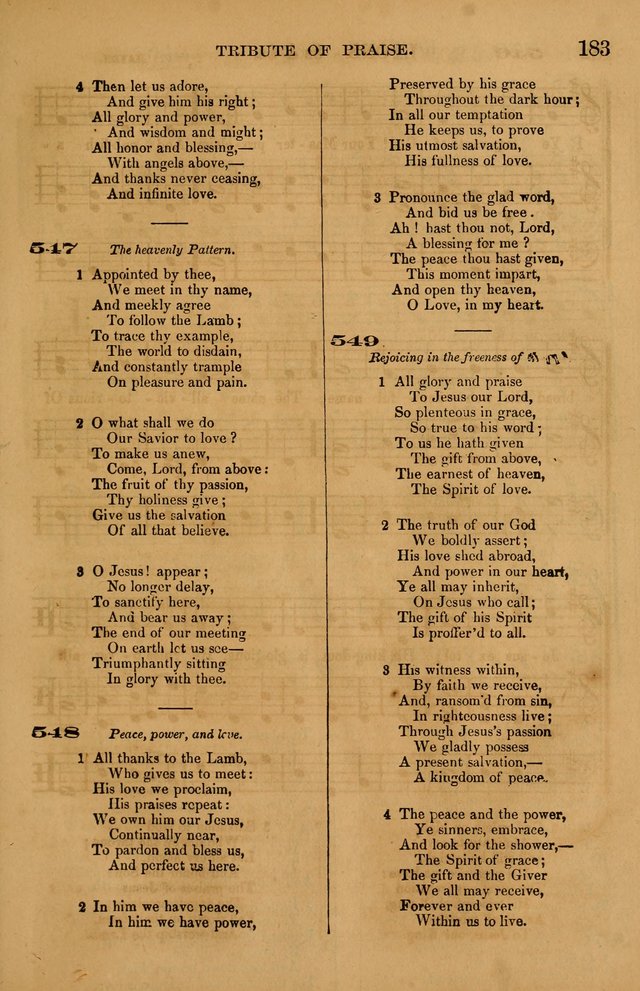 TRIBUTE OF PRAISE. 183
4 Then let us adore,
And give him his right;
All glory and power,
And wisdom and might;
All honor and blessing,—
With angels above,—
And thanks never ceasing,
And infinite love.
547 The heavenly Pattern.
1 Appointed by thee,
We meet in thy name,
And meekly agree
To follow the Lamb;
To trace thy example,
The world to disdain,
And constantly trample
On pleasure and pain.
2 O what shall we do
Our Savior to love?
To make us anew,
Come, Lord, from above:
The fruit of thy passion,
Thy holiness give;
Give us the salvation
Of all that believe.
3 O Jesus! appear;
No longer delay,
To sanctify here,
And bear us away;
The end of our meeting
On earth let us see—
Triumphantly sitting
In glory with thee.
548 Peace, power, and love.
1 All thanks to the Lamb,
Who gives us to meet:
His love we proclaim,
His praises repeat:
We own him our Jesus,
Continually near,
To pardon and bless us,
And perfect us here.
2 In him we have peace,
In him we have power,
Preserved by his grace
Throughout the dark hour;
In all our temptation
He keeps us, to prove
His utmost salvation,
His fullness of love.
3 Pronounce the glad word,
And bid us be free.
Ah! hast thou not, Lord,
A blessing for me?
The peace thou hast given,
This moment impart,
And open thy heaven,
O Love, in my heart.
549
Rejoicing in the freeness of
1 All glory and praise
To Jesus our Lord,
So plenteous in grace,
So true to his word;
To us he hath given
The gift from above,
The earnest of heaven,
The Spirit of love.
2 The truth of our God
We boldly assert;
His love shed abroad,
And power in our heart,
Ye all may inherit,
On Jesus who call;
The gift of his Spirit
Is proffer'd to all.
3 His witness within,
By faith we receive,
And, ransom'd from sin,
In righteousness live;
Through Jesus's passion
We gladly possess
A present salvation,—
A kingdom of peace.
4 The peace and the power,
Ye sinners, embrace,
And look for the shower,—
The Spirit of grace;
The gift and the Giver
We all may receive,
Forever and ever
Within us to live.